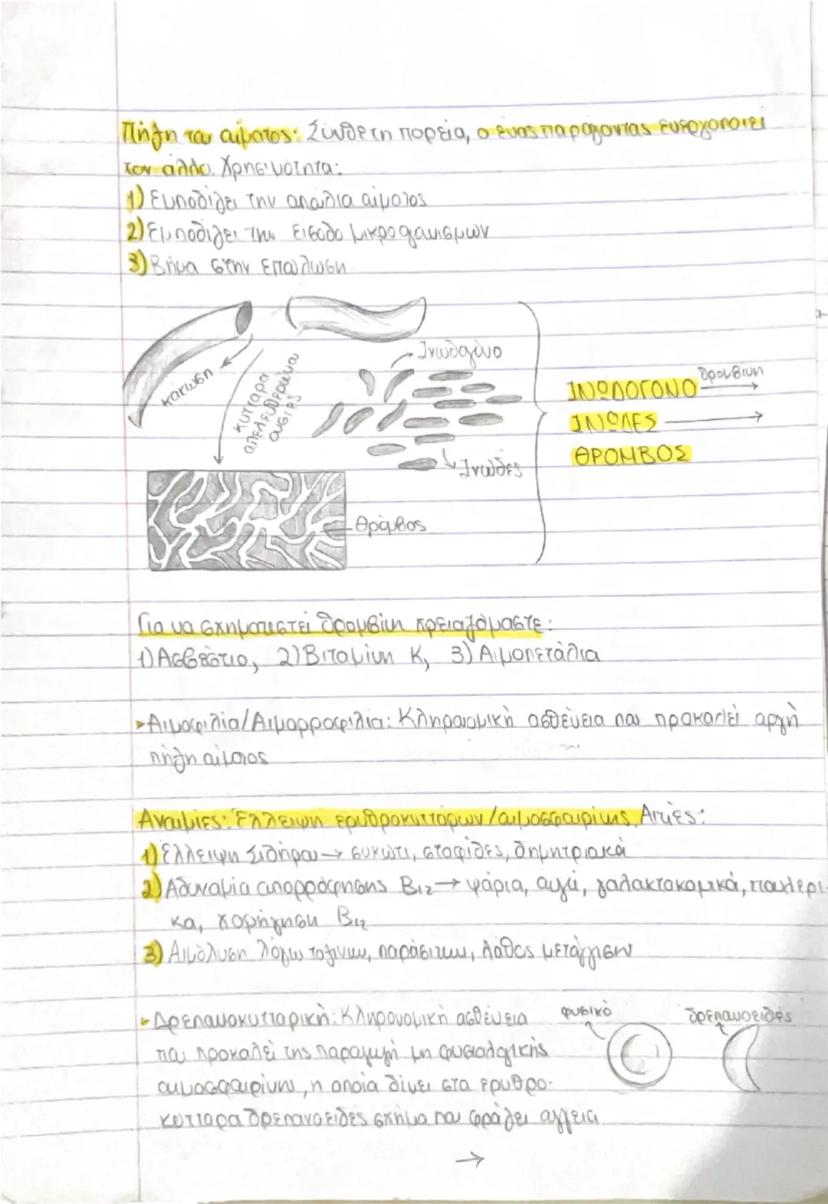 Πήξη του αίματος: Σύνθετη πορεία, ο ένας παράγοντας ενεργοποιεί
τον άλλο. Χρησιμότητα:
1) Εμποδίζει την απώλεια αίματος
2) Εμποδίζει την είσοδο μικροοργανισμών
3) Βήμα στην επούλωση
κάκωση
κύτταρα
απελευθερώνουν
ουσίες
Ινωδογόνο
Ινώδες
Θρόμβος
ΙΝΩΔΟΓΟΝΟ θρομβίνη →
ΙΝΩΔΕΣ →
ΘΡΟΜΒΟΣ
Για να σχηματιστεί θρομβίνη χρειαζόμαστε:
1) Ασβέστιο, 2) Βιταμίνη Κ, 3) Αιμοπετάλια
▸Αιμοφιλία/Αιμορροφιλία: Κληρονομική ασθένεια που προκαλεί αργή
πήξη αίματος
Αναιμίες: Έλλειψη ερυθροκυττάρων/αιμοσφαιρίνης. Αιτίες:
1) Έλλειψη Σιδήρου → συκώτι, σταφίδες, δημητριακά
2) Αδυναμία απορρόφησης Β12 → ψάρια, αυγά, γαλακτοκομικά, πουλερι-
κα, χορήγηση Β12
3) Αιμόλυση λόγω τοξινων, παράσιτων, λάθος μετάγγιση
▸Δρεπανοκυτταρική: Κληρονομική ασθένεια
που προκαλεί της παραγωγή μη φυσιολογικής
αιμοσφαιρίνη, η οποία δίνει στα ερυθρο-
κυτταρα δρεπανοειδες σχήμα που φράζει αγγεια
φυσικό
δρεπανοειδές
→